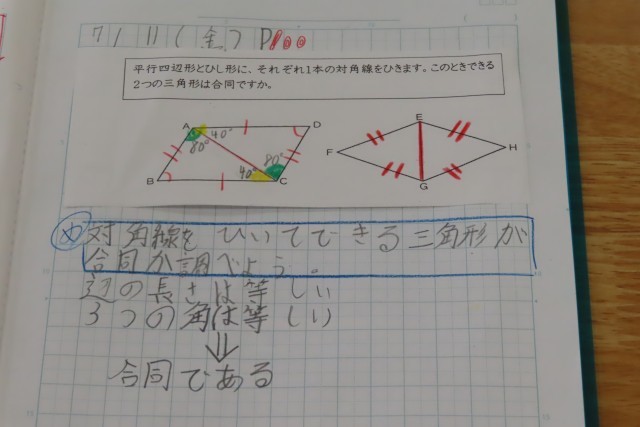 7/11(金) P100
平行四辺形とひし形に、それぞれ1本の対角線をひきます。このときできる
2つの三角形は合同ですか。
A 40° D
80°
80°
40°
B C
E
F H
G
め 対角線をひいてできる三角形が
合同か調べよう。
辺の長さは等しい
3つの角は等しい
⇓
合同である